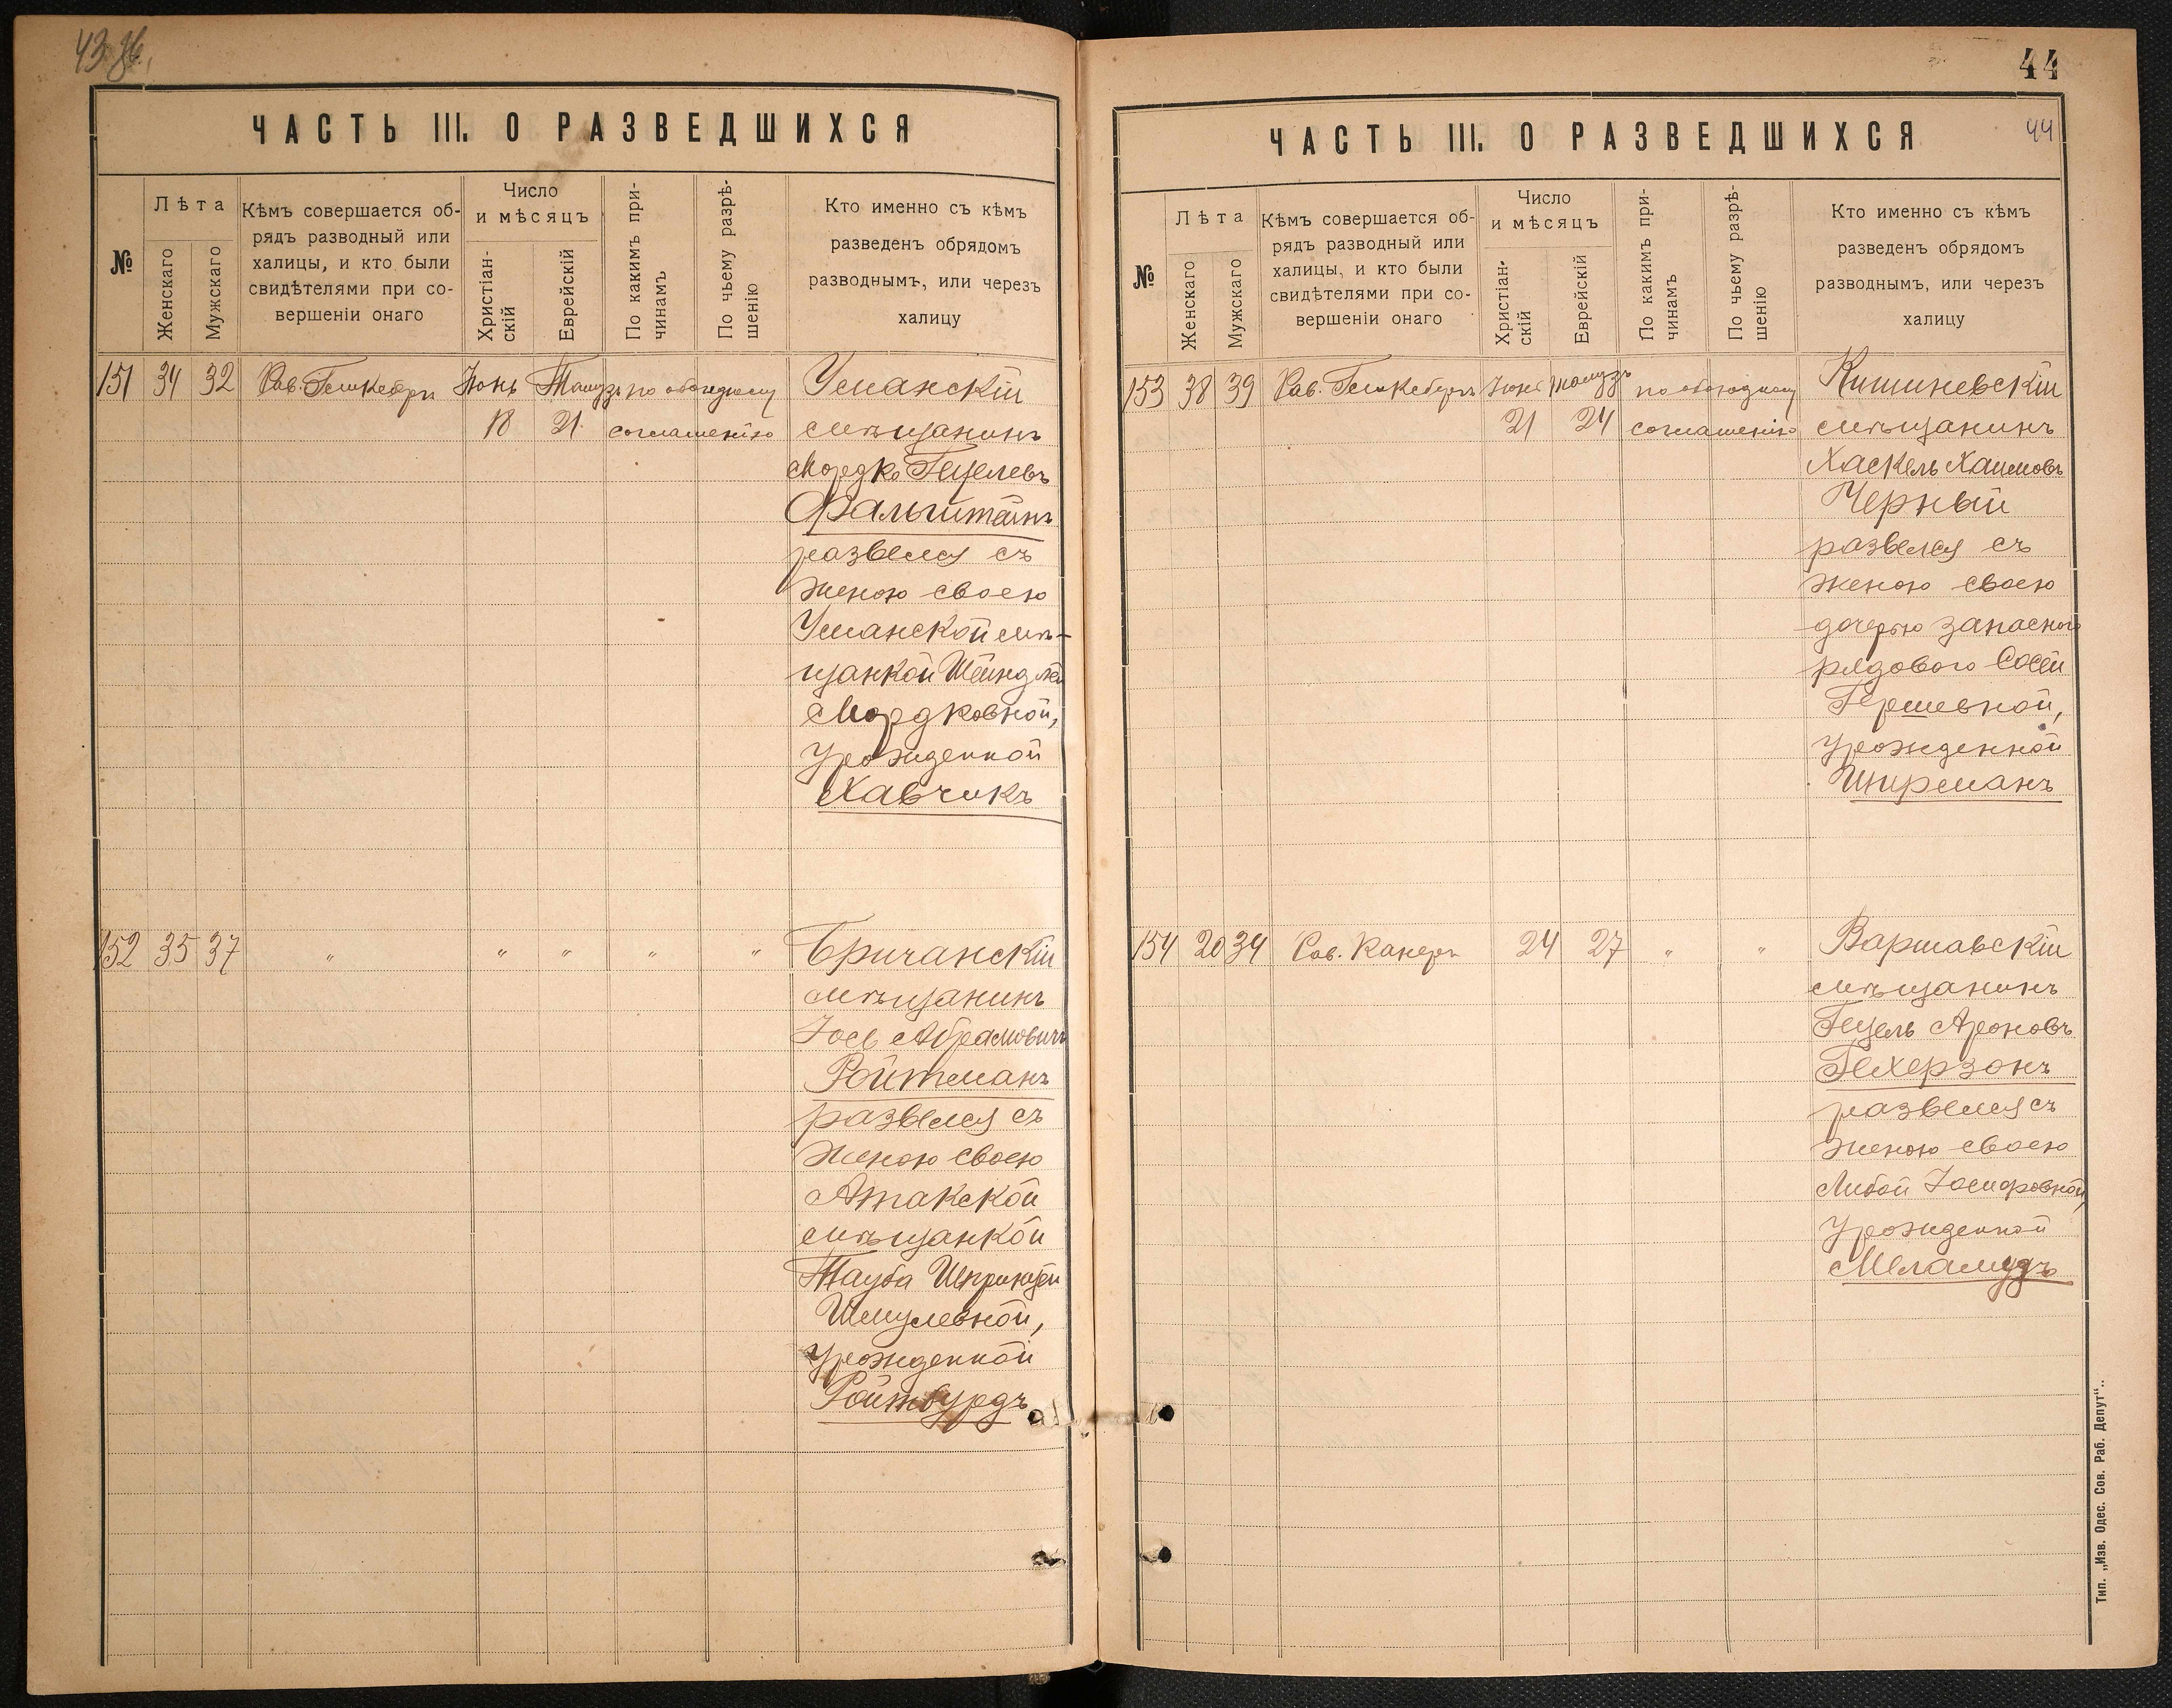 43
ЧАСТЬ III. О РАЗВЕДШИХСЯ
№
Лѣта
Женскаго
Мужскаго
Кѣмъ совершается об-
рядъ разводный или
халицы, и кто были
свидѣтелями при со-
вершеніи онаго
Число
и мѣсяцъ
Христіан-
скій
Еврейскій
По какимъ при-
чинамъ
По чьему разрѣ-
шенію
Кто именно съ кѣмъ
разведенъ обрядомъ
разводнымъ, или черезъ
халицу
151 34 32 Рав. Іюнь Тамузъ по обоюдному
18 21 соглашенію
Уманскій
мѣщанинъ
Мордко Гецелевъ
Фальштейнъ
развелся съ
женою своею
Уманской мѣ-
щанкой Шейндлей
Мордковной,
урожденной
Хавчикъ
152 35 37 " " " " "
Бричанскій
мѣщанинъ
Іось Абрамовичъ
Ройтманъ
развелся съ
женою своею
Атакской
мѣщанкой
Тауба Шпринцей
Шмулевной,
урожденной
Ройтбурдъ
44
44
ЧАСТЬ III. О РАЗВЕДШИХСЯ
№
Лѣта
Женскаго
Мужскаго
Кѣмъ совершается об-
рядъ разводный или
халицы, и кто были
свидѣтелями при со-
вершеніи онаго
Число
и мѣсяцъ
Христіан-
скій
Еврейскій
По какимъ при-
чинамъ
По чьему разрѣ-
шенію
Кто именно съ кѣмъ
разведенъ обрядомъ
разводнымъ, или черезъ
халицу
153 38 39 Рав. Іюнь Тамузъ по обоюдному
21 24 соглашенію
Кишиневскій
мѣщанинъ
Хаскель Хаимовъ
Черный
развелся съ
женою своею
дочерью запасного
рядового Сосей
Гершевной,
урожденной
Шпрманъ
154 20 34 Рав. Канеръ 24 27 " "
Варшавскій
мѣщанинъ
Гецель Ароновъ
Гехерзонъ
развелся съ
женою своею
Либой Іосифовной,
урожденной
Меламудъ
Тип. „Изв. Одес. Сов. Раб. Депут“..